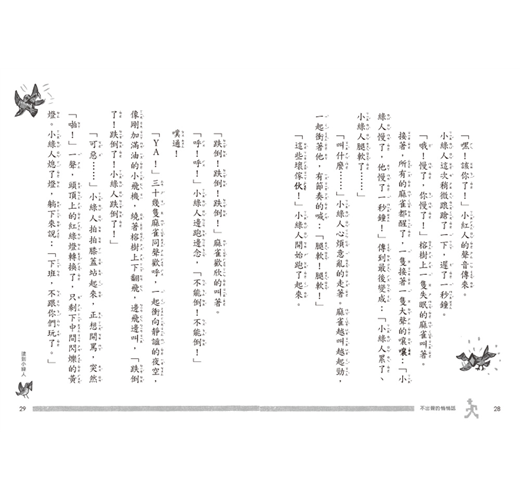 「嘿！該你了！」小紅人的聲音傳來。
小綠人這次稍微跟蹌了一下，遲了一秒鐘。
「哦！慢了，你慢了！」榕樹上一隻失眠的麻雀叫著。
接著，所有的麻雀都醒了，一隻接著一隻大聲的嚷嚷：「小
綠人慢了，他慢了一秒鐘！」傳到最後變成：「小綠人累了、
小綠人腿軟了……」
「叫什麼……」小綠人心煩意亂的走著。麻雀越叫越起勁，
一起衝著他，有節奏的喊：「腿軟！腿軟！」
「這些壞傢伙！」小綠人開始跑了起來。
28
不出聲的悄悄話
「跌倒！跌倒！跌倒！」麻雀歡欣的叫著。
「呼！呼！」小綠人邊跑邊念，「不能倒！不能倒！」
噗通！
「YA！」三十幾隻麻雀同聲歡呼，一起衝向靜謐的夜空，
像剛加滿油的小飛機，繞著榕樹上下翻飛，邊飛邊叫，「跌倒
了！跌倒了！小綠人跌倒了！」
「可惡……」小綠人拍拍膝蓋站起來，正想開罵，突然
「啪！」一聲，頭頂上的紅綠燈轉換了，只剩下中間閃爍的黃
燈。小綠人熄了燈，躺下來說：「下班，不跟你們玩了。」
小綠人
29